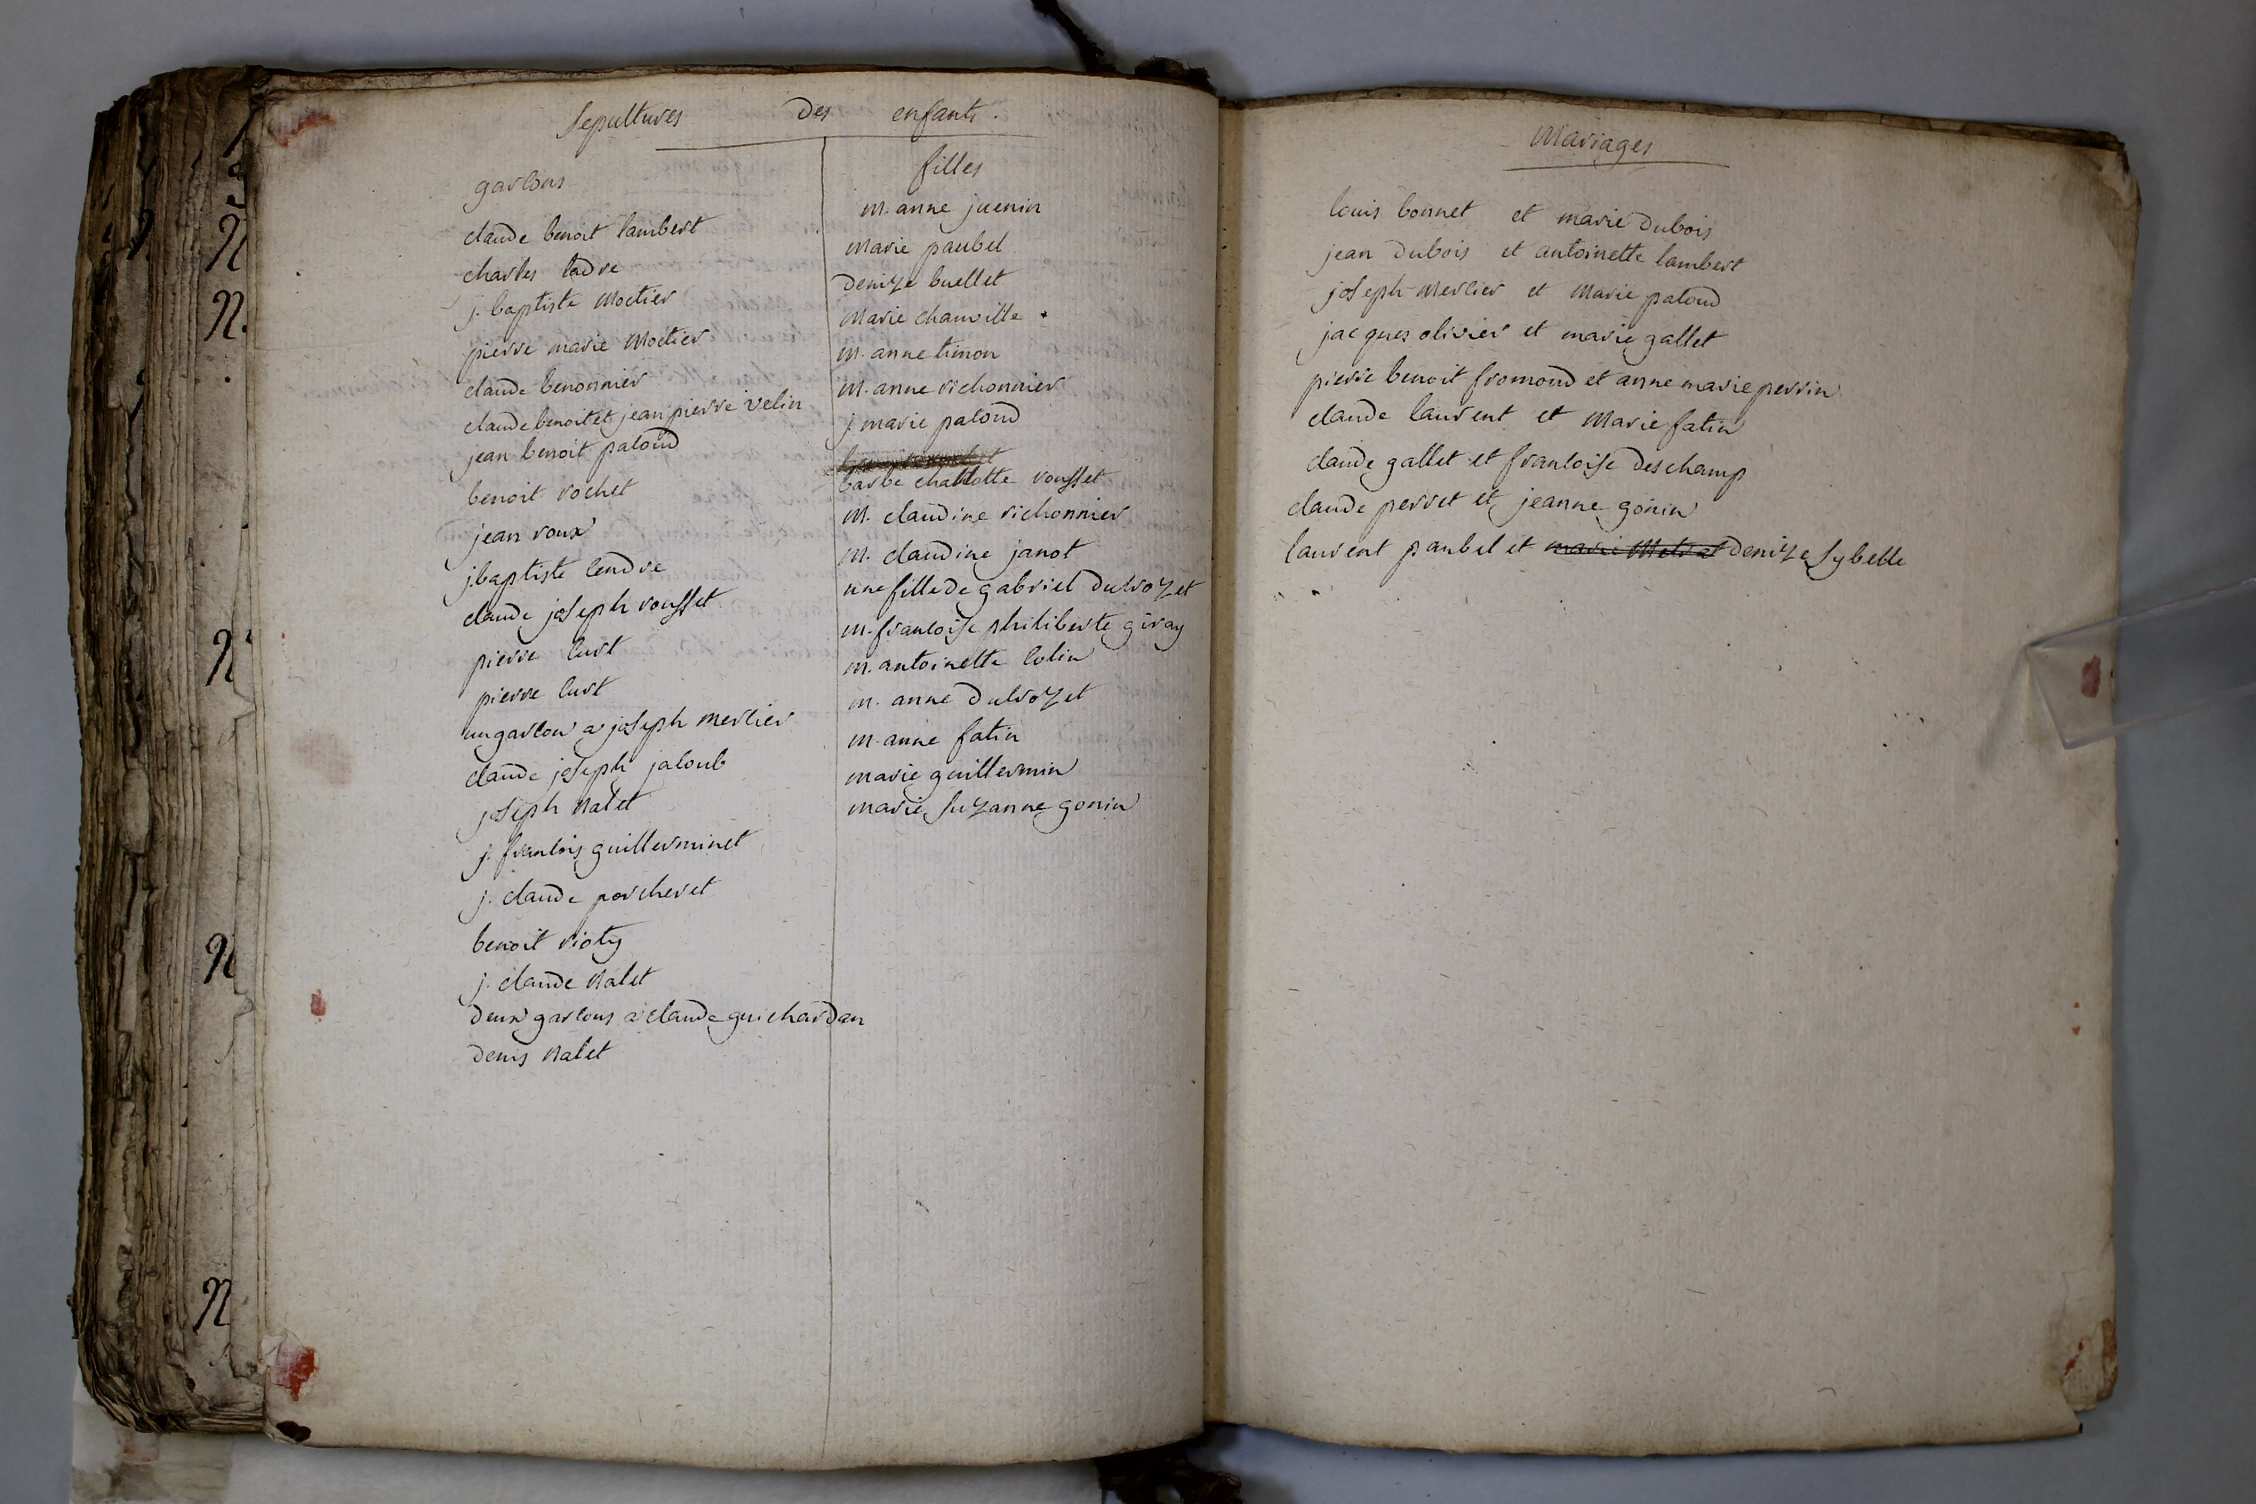 Sepultures des enfants.
garcons
claude benoit lambert
charles ladre
j. baptiste Moctier
pierre marie Moctier
claude benonnier
claude benoit et jean pierre velin
jean benoit paloud
benoit rochet
jean roux
j. baptiste cendre
claude joseph rousset
pierre curt
pierre curt
un garcon a joseph mercier
claude joseph jaloub
joseph Nalet
j. francois guillerminet
j. claude porcheret
benoit rioty
j. claude Nalet
deux garcons a claude guichardan
denis Nalet
filles
m. anne juenin
marie paubel
denize buellet
marie chanville
m. anne timon
m. anne richonnier
j. marie paloud
barbe charlotte rousset
m. claudine richonnier
m. claudine janot
une fille de gabriel ducrozet
m. francoise philiberte giray
m. antoinette colin
m. anne ducrozet
m. anne fatin
marie guillermin
marie suzanne gonin
Mariages
louis bonnet et marie dubois
jean dubois et antoinette lambert
joseph mercier et marie paloud
jacques olivier et marie gallet
pierre benoit fromond et anne marie perrin
claude laurent et Marie fatin
claude gallet et francoise deschamp
claude perret et jeanne gonin
laurent paubel et marie denize sybelle